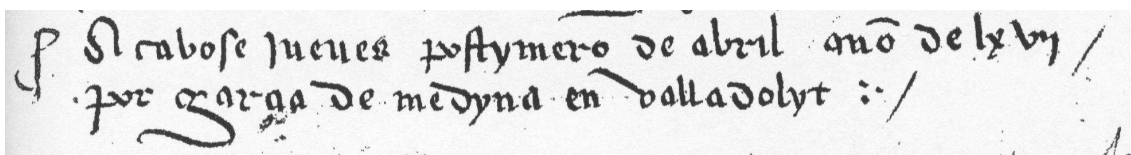 ¶ Acabose jueves postymero de abril año de lxvij /
por garçia de medyna en valladolyt :~ /